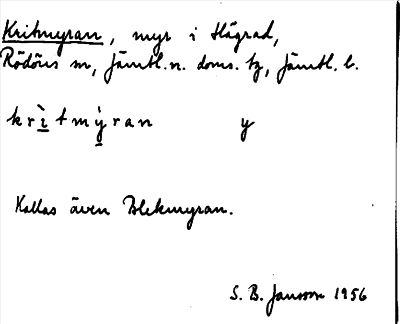 Kritmyran, myr i Hägrad,
Rödöns sn, Jämtl. n. doms. tg, Jämtl. l.
krìtmỳran y
Kallas även Blekmyran.
S. B. Jansson 1956